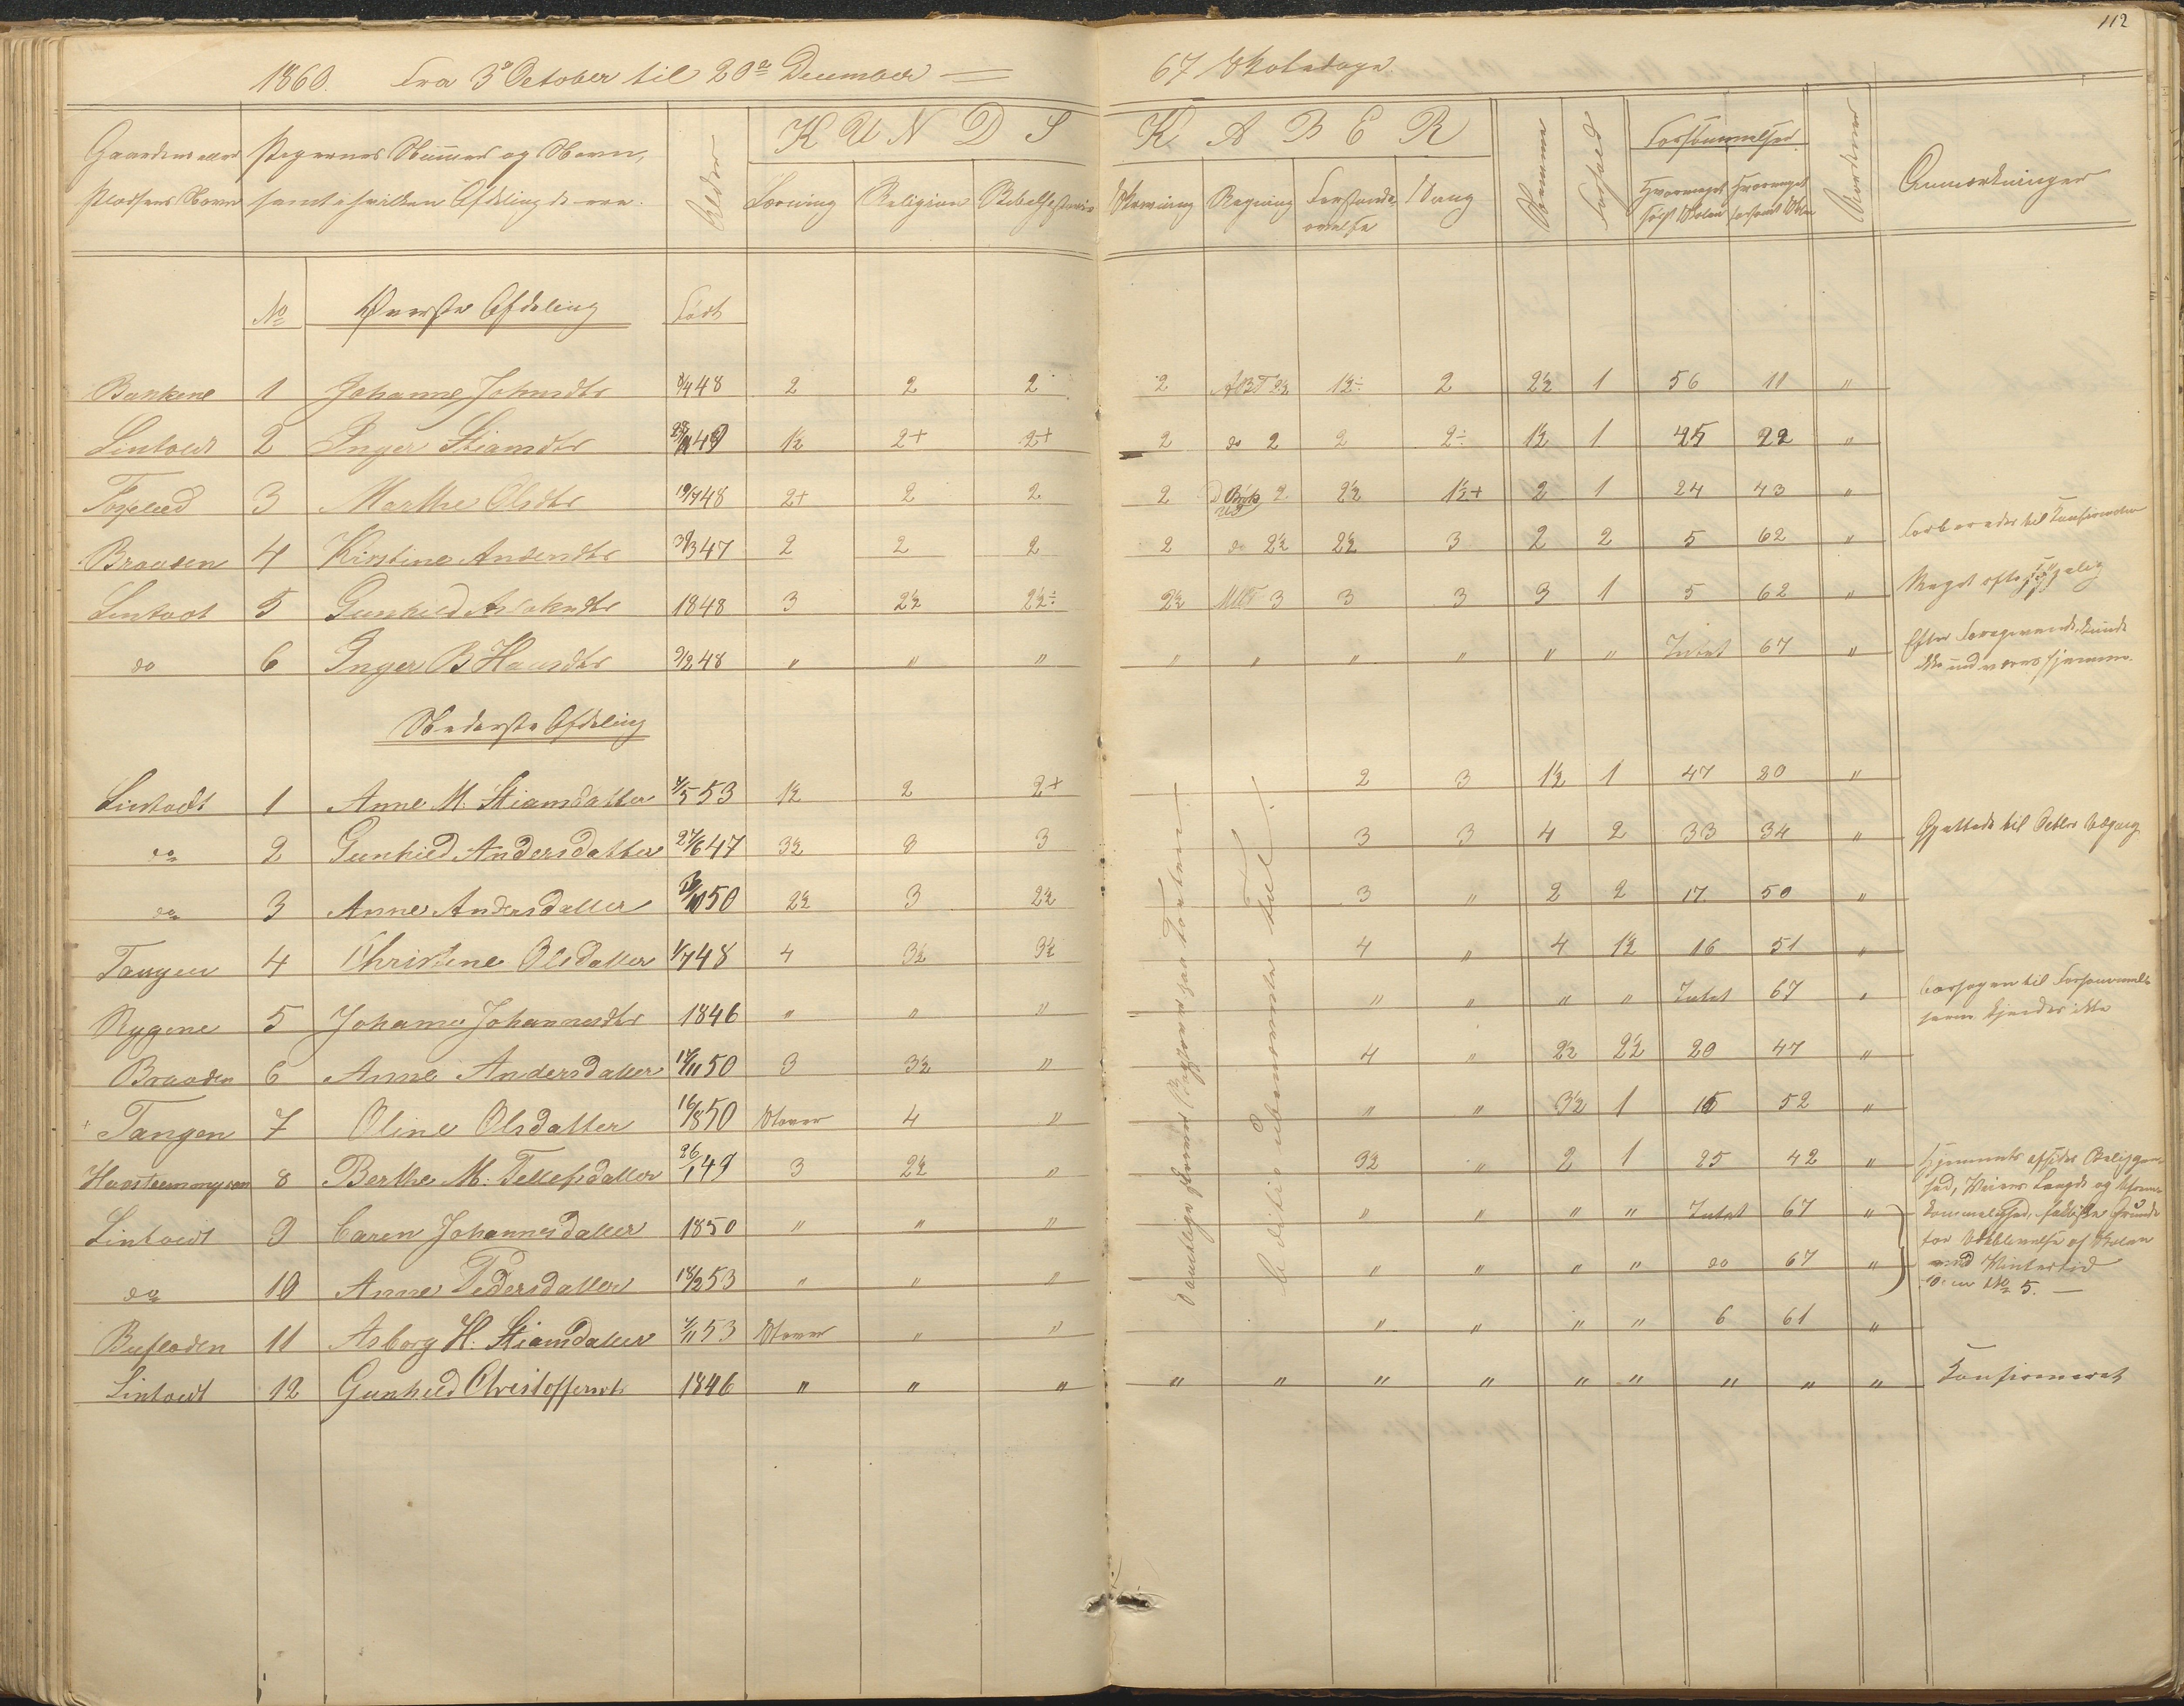 112
1860. Fra 3e October til 20de December — 67 Skoledage.
Gaardens eller Pladsens Navn
Pigernes Nummer og Navn, samt i hvilken Afdeling de ere.
Alder
KUNDSKABER
Læsning Religion Bibelhistorie Skrivning Regning Forstandsøvelse Sang
Nemme
Forhold
Forsømmelser
Hvormeget søgt Skolen
Hvormeget forsømt Skolen
Anmærkninger
No Øverste Afdeling Født
Bankene 1 Johanne Johnsdtr 48 2 2 2 2 2½ 1½÷ 2 2½ 1 56 11 "
Lintoedt 2 Inger Stiansdtr 49 1½ 2+ 2+ 2 do 2 2 2÷ 1½ 1 45 22 "
3 Marthe Olsdtr 19/7 48 2+ 2 2 2 2 2½ 1½+ 2 1 24 43 "
Braaden 4 Kirstine Andersdtr 30/3 47 2 2 2 2 do 2½ 2½ 3 2 2 5 62 " Forberedes til Konfirmation
Lintoedt 5 Gunhild 1848 3 2½ 2½÷ 2½ 3 3 3 3 1 5 62 " Meget ofte
do 6 Inger B Hansdtr 9/2 48 " " " " " " " " " Intet 67 " Efter Foregivende kunde ikke undværes hjemme.
Nederste Afdeling
Lintoedt 1 Anne M. Stiansdatter 53 1½ 2 2+ 2 3 1½ 1 47 20 "
do 2 Gunhild Andersdatter 27/6 47 3½ 3 3 3 3 4 2 33 34 "
do 3 Anne Andersdatter 50 2½ 3 2½ 3 " 2 2 17 50 "
Tangen 4 Christine Olsdatter 1/7 48 4 3½ 3½ 4 " 4 1½ 16 51 "
Rygene 5 Johanne Johannesdtr 1846 " " " " " " " Intet 67 " Aarsagen til Forsømmelserne kjendes ikke
Braaden 6 Anne Andersdatter 50 3 3½ " 4 " 2½ 2½ 20 47 "
+ Tangen 7 Oline Olsdatter 16/8 50 Staver 4 " " " 3½ 1 15 52 "
8 Berthe M. Tellefsdatter 26/1 49 3 2½ " 3½ " 2 1 25 42 "
Lintoedt 9 Caren Johannesdatter 1850 " " " " " " " Intet 67 "
do 10 Anne Pedersdatter 18/2 53 " " " " " " " do 67 "
Hjemmets afsides Beliggenhed, Veiens Længde og faktiske Grunde for Udeblivelse af Skolen ved Vintertid
10: No 5. —
Bufloden 11 Asborg H. Stiansdatter 53 Staver " " " " " " 6 61 "
Lintoedt 12 Gunhild 1846 " " " " " " " " " " " " Konfirmeret